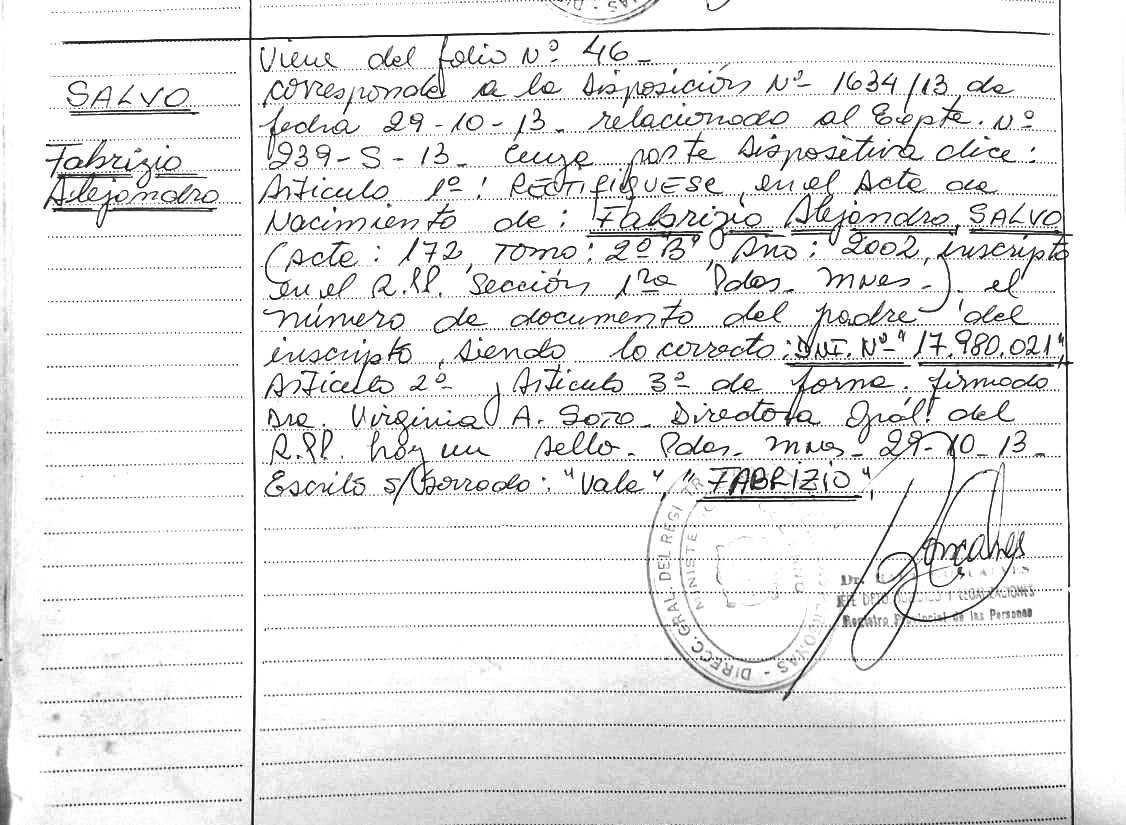 Viene del folio Nº 46-
SALVO
corresponde a la Disposición Nº 1634/13 de
fecha 29-10-13. relacionado al Expte. Nº
Fabrizio
Alejandro
239-S-13. Cuya parte Dispositiva dice:
Artículo 1º: RECTIFIQUESE, en el Acta de
Nacimiento de: Fabrizio Alejandro SALVO
(Acta: 172, Tomo: 2º"B", Año: 2002, inscripto
en el R.PP. Sección 1ra Pdas. Mnes-). el
número de documento del padre del
inscripto, siendo lo correcto: DNI. Nº-"17.980.021",
Artículo 2º y Artículo 3º de forma. firmado
Dra. Virginia A. SOTO- Directora Gral. del
R.PP. hay un sello- Pdas. Mnes- 29-10-13-
Escrito s/borrado: "Vale", "FABRIZIO",
DIRECC. GRAL. DEL REGISTR
MINISTE
PERSONAS
Goncalves
Dr.
JEFE DPTO. Y LEGALIZACIONES
Registro Provincial de las Personas